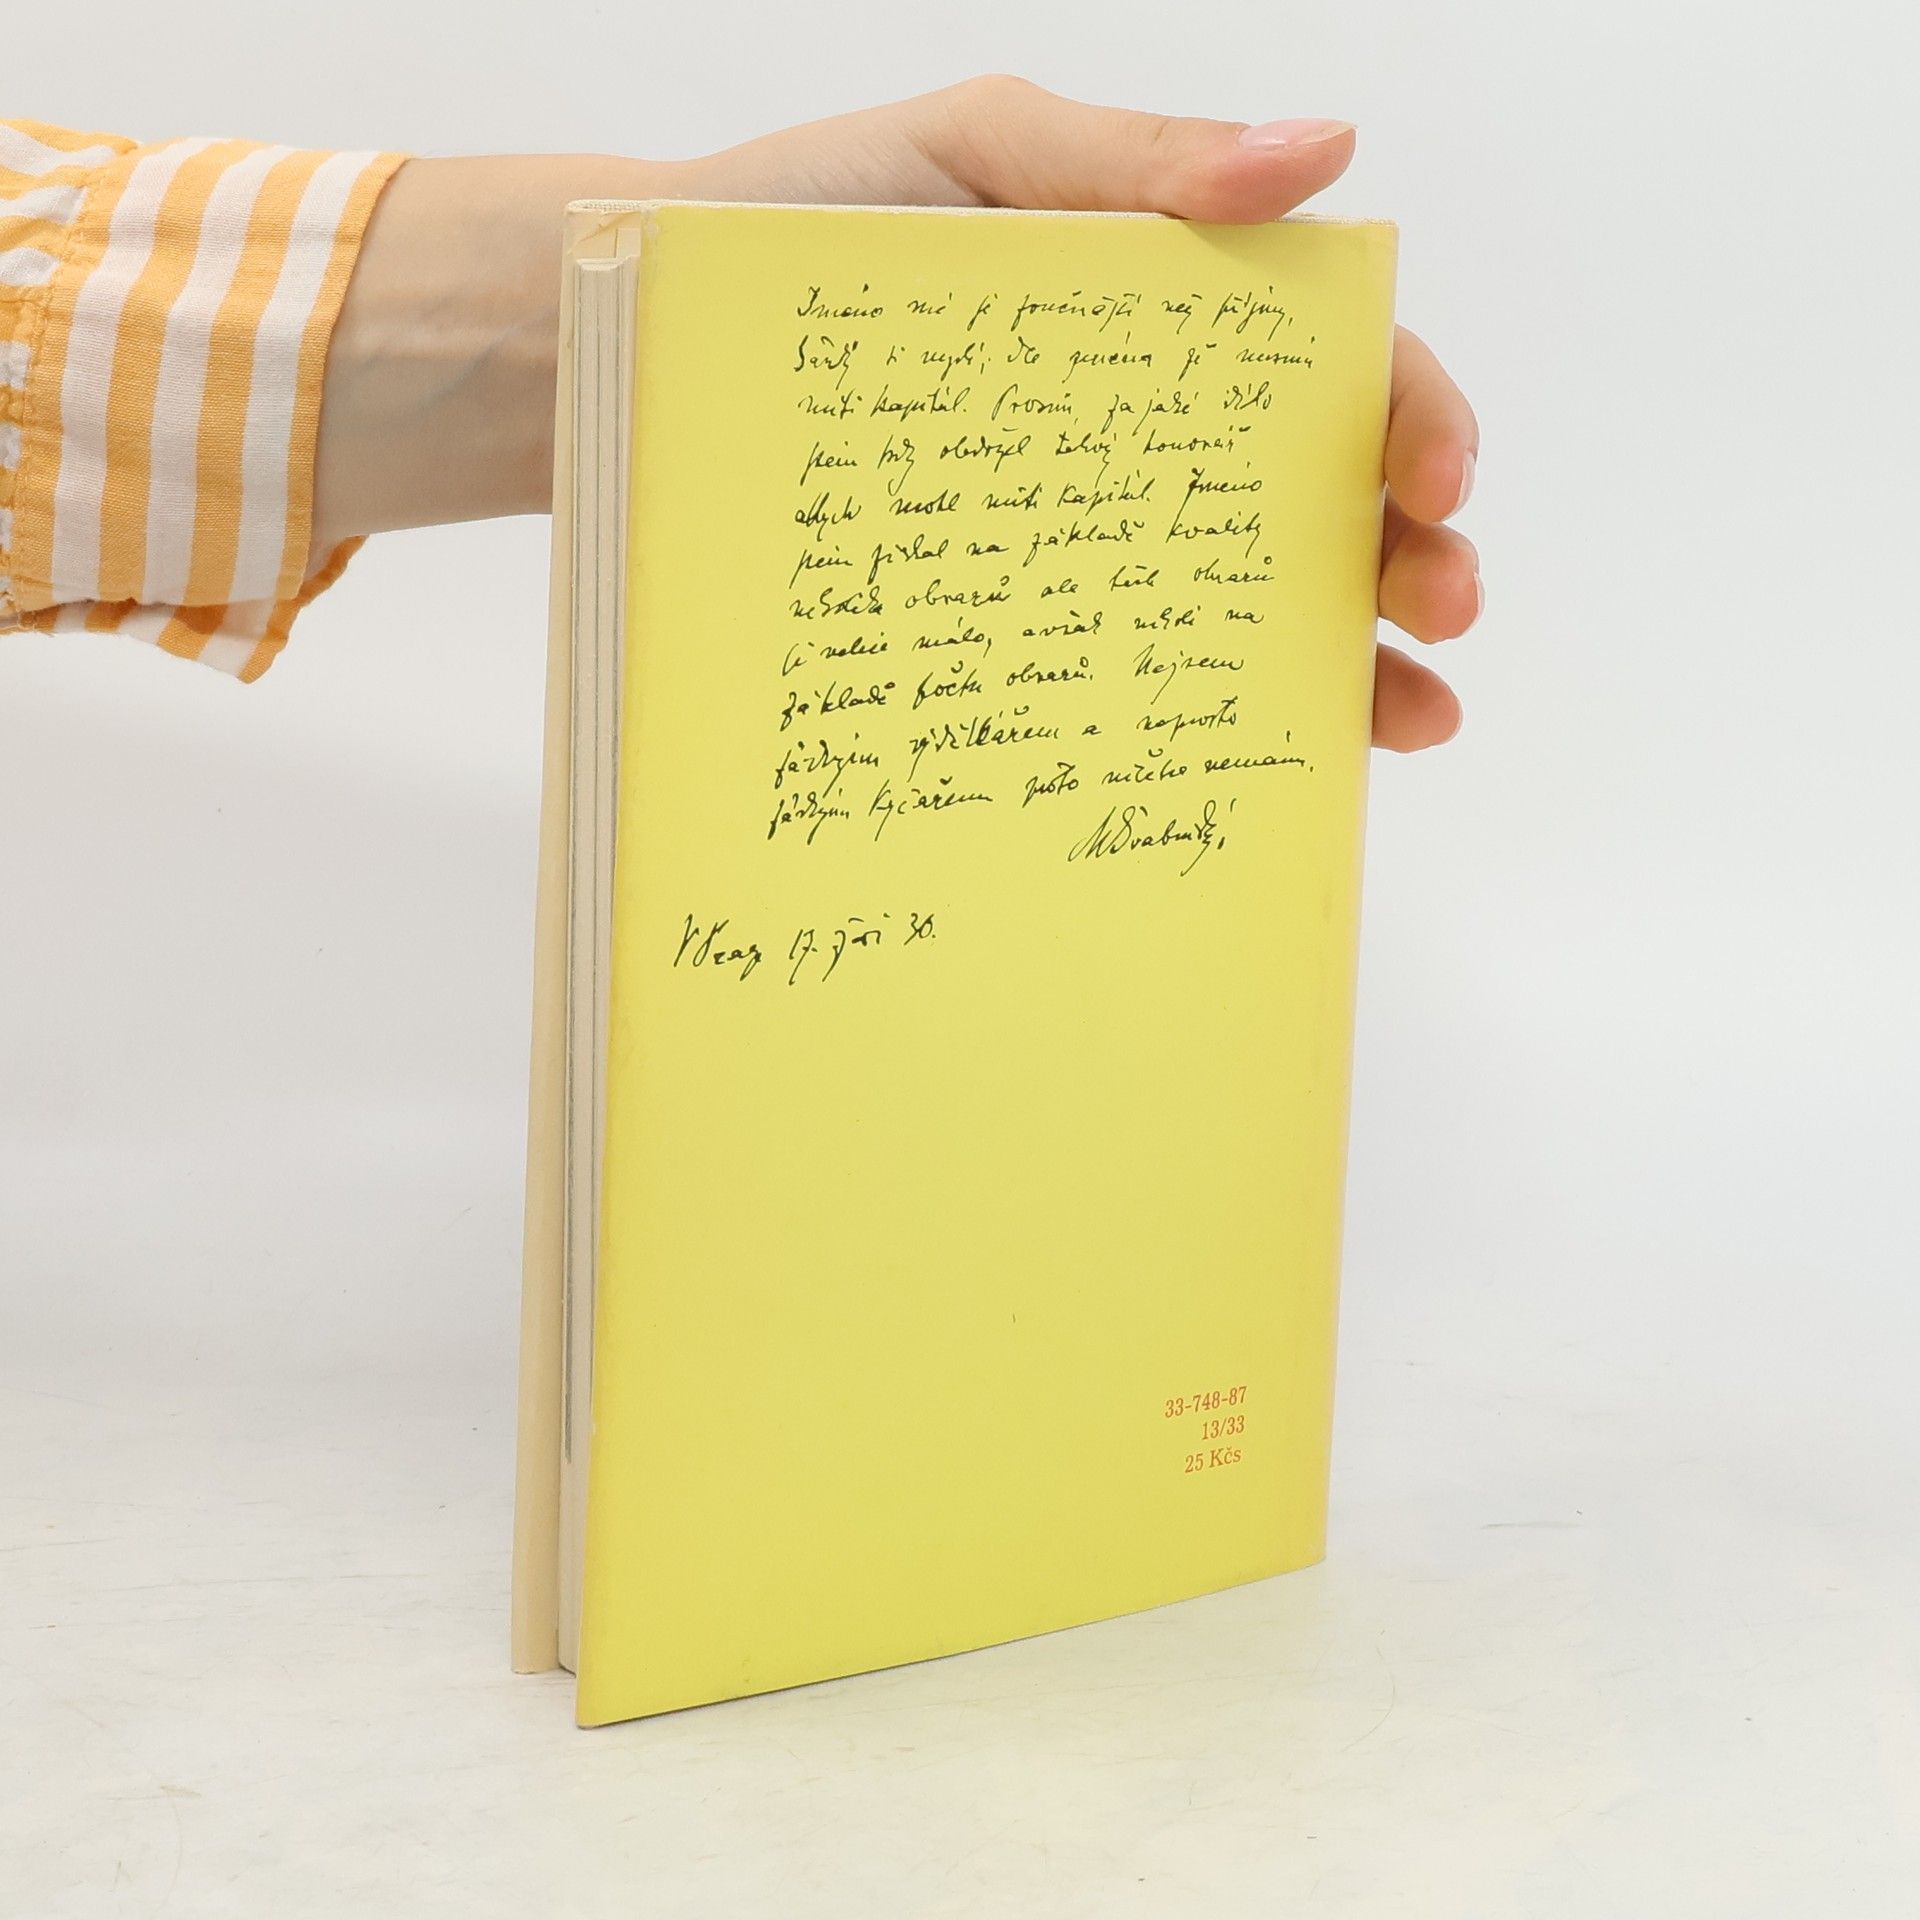 Jméno mé je zvučnější než příjmy,
každý si myslí; dle jména že musím
míti kapitál. Prosím, za jaké dílo
jsem kdy obdržel takový honorář
abych mohl míti kapitál. Jméno
jsem získal na základě kvality
několika obrazů ale těch obrazů
je velice málo, avšak nikoli na
základě počtu obrazů. Nejsem
žádným výdělkářem a naprosto
žádným kýčařem proto ničeho nemám.
MŠvabinský
V Praze 17. září 30.
33-748-87
13/33
25 Kčs